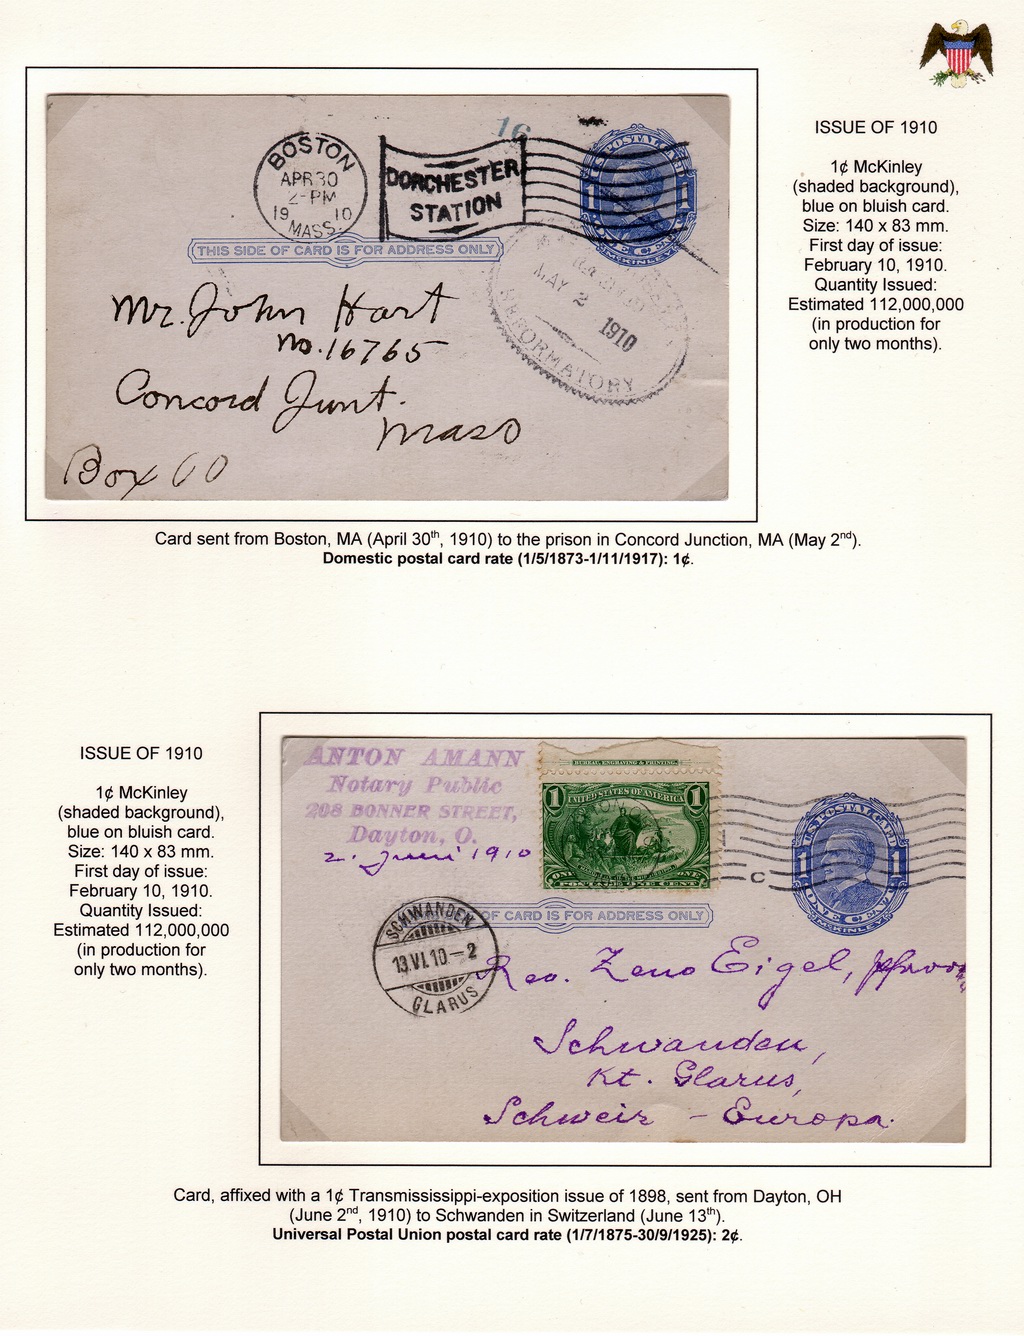 ISSUE OF 1910
1¢ McKinley
(shaded background),
blue on bluish card.
Size: 140 x 83 mm.
First day of issue:
February 10, 1910.
Quantity Issued:
Estimated 112,000,000
(in production for
only two months).
16
BOSTON
APR 30
2-PM
19 10
MASS.
DORCHESTER
STATION
U.S. POSTAL CARD
1 1
ONE CENT
McKINLEY
THIS SIDE OF CARD IS FOR ADDRESS ONLY
MAY 2
1910
REFORMATORY
Mr. John Hart
No. 16765
Concord Junt.
Mass
Box 00
Card sent from Boston, MA (April 30th, 1910) to the prison in Concord Junction, MA (May 2nd).
Domestic postal card rate (1/5/1873-1/11/1917): 1¢.
ISSUE OF 1910
1¢ McKinley
(shaded background),
blue on bluish card.
Size: 140 x 83 mm.
First day of issue:
February 10, 1910.
Quantity Issued:
Estimated 112,000,000
(in production for
only two months).
ANTON AMANN
Notary Public
208 BONNER STREET,
Dayton, O.
2. Juni 1910
BUREAU, ENGRAVING & PRINTING.
UNITED STATES OF AMERICA
1 1
POSTAGE ONE CENT
C
U.S. POSTAL CARD
1 1
ONE CENT
McKINLEY
OF CARD IS FOR ADDRESS ONLY
SCHWANDEN
13.VI.10-2
GLARUS
Rev. Zeno Eigel,
Schwanden,
Kt. Glarus,
Schweiz - Europa.
Card, affixed with a 1¢ Transmississippi-exposition issue of 1898, sent from Dayton, OH
(June 2nd, 1910) to Schwanden in Switzerland (June 13th).
Universal Postal Union postal card rate (1/7/1875-30/9/1925): 2¢.